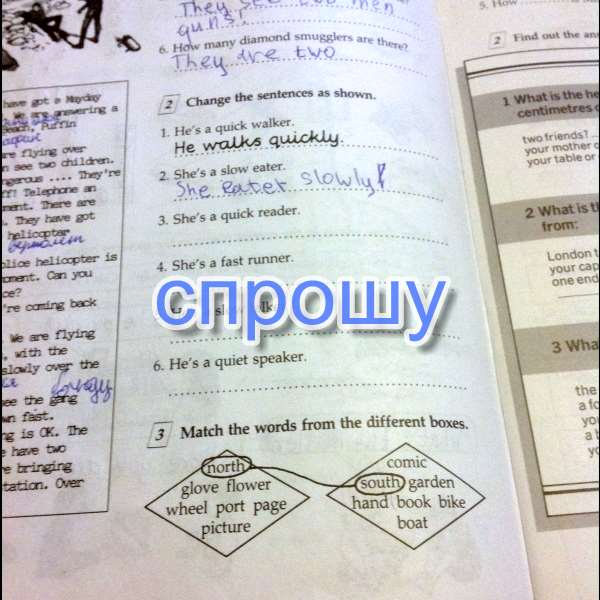 They see two men
guns.
5. How
6. How many diamond smugglers are there?
They are two
2 Find out the
2 Change the sentences as shown.
1. He's a quick walker.
He walks quickly.
2. She's a slow eater.
She eater slowly!
3. She's a quick reader.
4. She's a fast runner.
спрошу
6. He's a quiet speaker.
3 Match the words from the different boxes.
north
glove flower
wheel port page
picture
comic
south garden
hand book bike
boat
have got a Mayday
We are answering a
Beach, Puffin
are flying over
see two children.
They're
Telephone an
There are
They have got
helicopter
вертолет
police helicopter is
Can you
're coming back
We are flying
with the
slowly over the
see the gang
fast.
is OK. The
have two
bringing
Over
1 What is the
centimetres
two friends?
your mother
your table or
2 What is
from:
London
your
one end
3
the